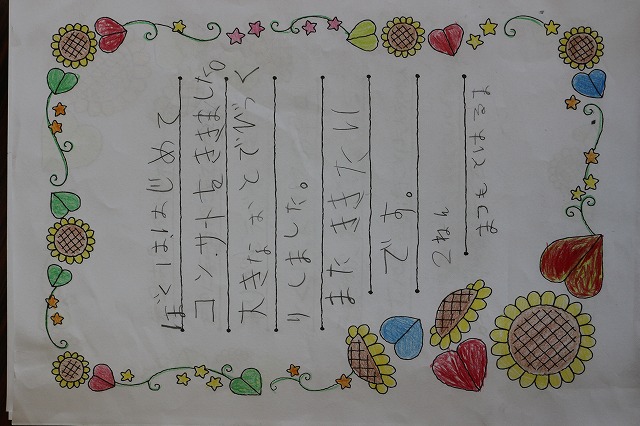 ぼくははじめて
コンサートをききました。
大きなおとでびっく
りしました。
またききたい
です。
2ねん
まつもと はるま